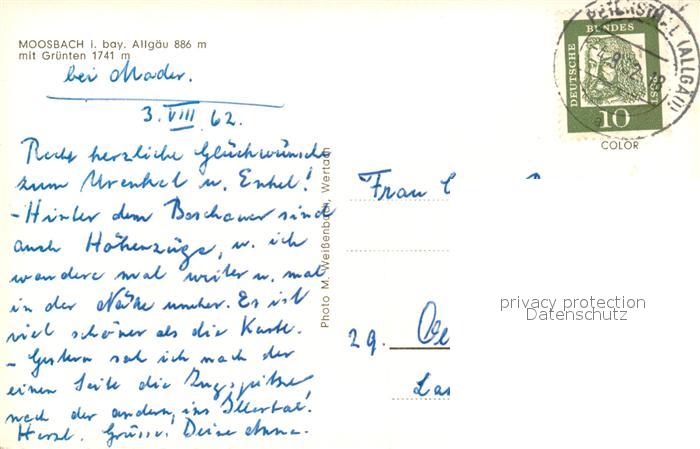 MOOSBACH i. bay. Allgäu 886 m
mit Grünten 1741 m
bei Mader.
3. VIII. 62.
Recht herzliche Glückwünsche
zum Urenkel u. Enkel!
- Hinter dem Beschauer sind
auch Höhenzüge, u. ich
wandere mal weiter u. mal
in der Nähe umher. Es ist
viel schöner als die Karte.
- Gestern sah ich nach der
einen Seite die Zugspitze,
nach der andern, ins Illertal!
Herzl. Grüsse. Deine Anna.
Photo M. Weißenbach, Wertach
DEUTSCHE BUNDESPOST
10
(ALLGÄU)
COLOR
Frau
29.
privacy protection
Datenschutz